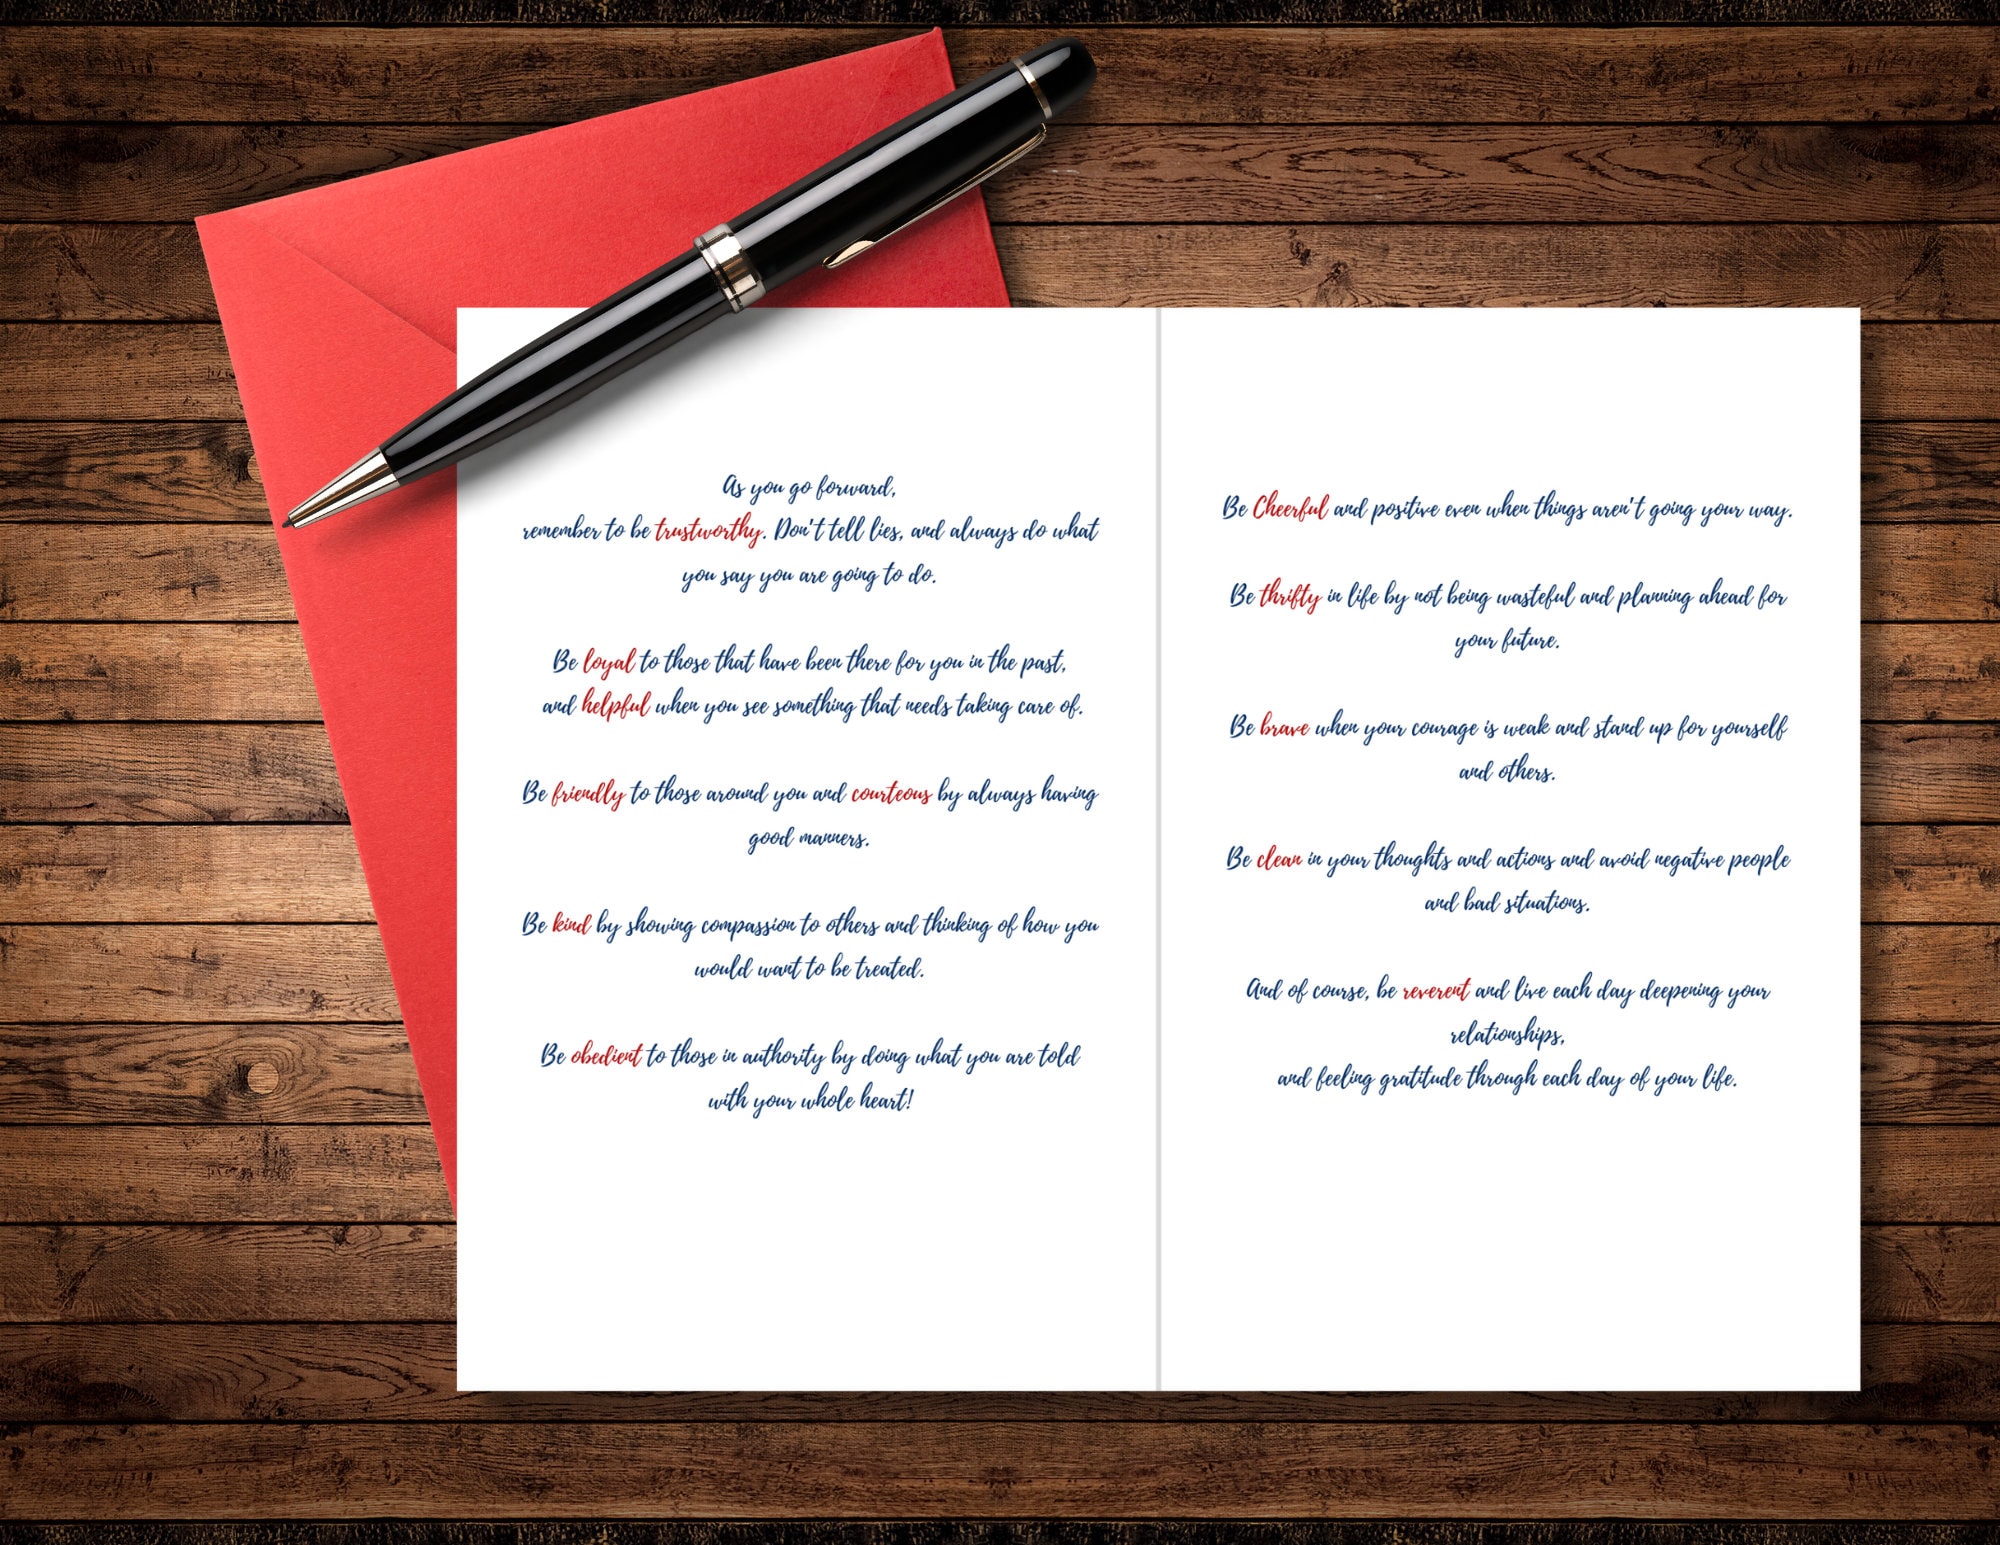 As you go forward,
remember to be trustworthy. Don't tell lies, and always do what
you say you are going to do.
Be loyal to those that have been there for you in the past,
and helpful when you see something that needs taking care of.
Be friendly to those around you and courteous by always having
good manners.
Be kind by showing compassion to others and thinking of how you
would want to be treated.
Be obedient to those in authority by doing what you are told
with your whole heart!
Be Cheerful and positive even when things aren't going your way.
Be thrifty in life by not being wasteful and planning ahead for
your future.
Be brave when your courage is weak and stand up for yourself
and others.
Be clean in your thoughts and actions and avoid negative people
and bad situations.
And of course, be reverent and live each day deepening your
relationships,
and feeling gratitude through each day of your life.